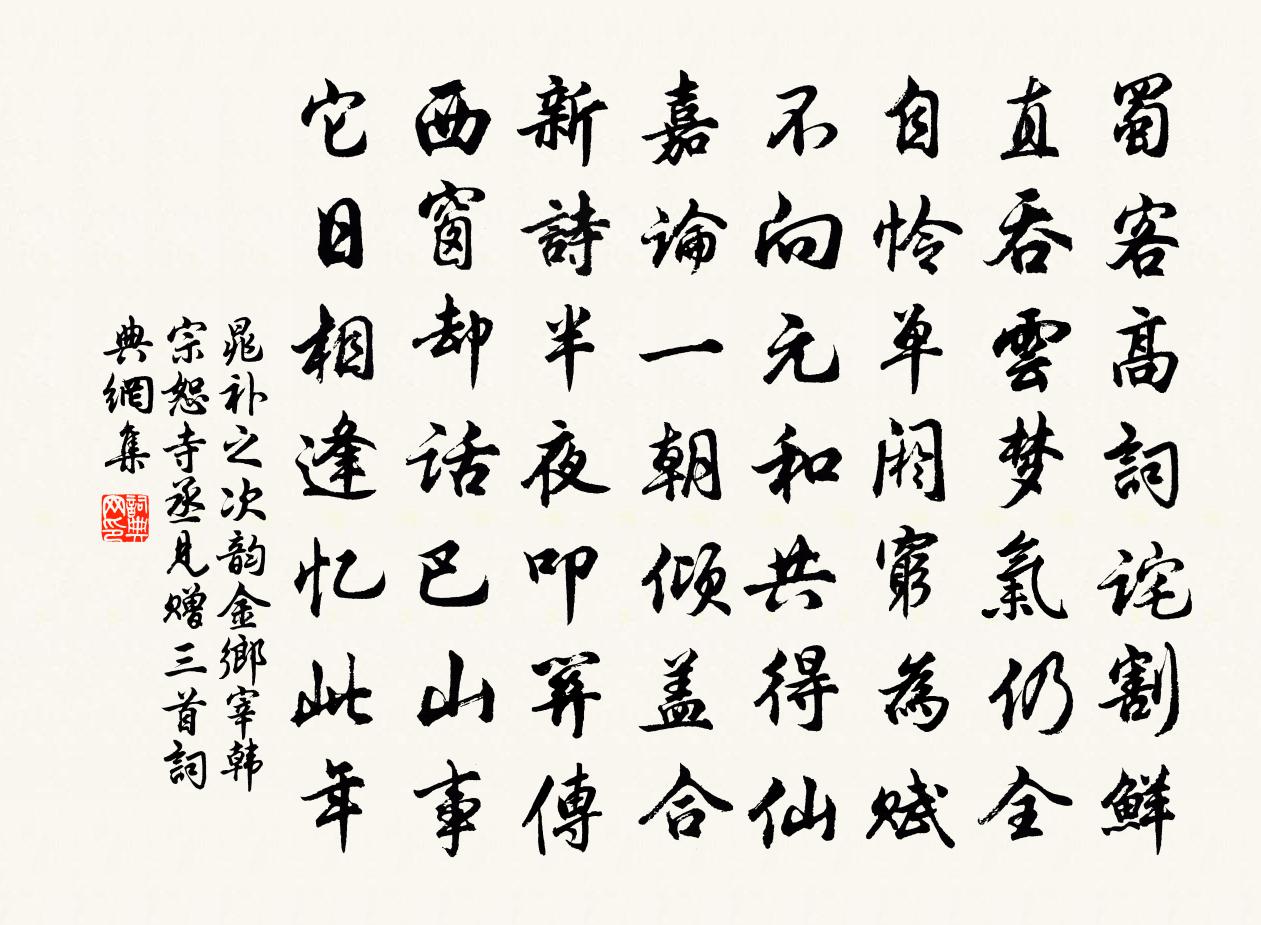 蜀客高詞詫割鮮
直吞雲梦氣仍全
自怜单阏窮為赋
不向元和共得仙
嘉論一朝傾盖合
新詩半夜叩關傳
西窗却话巴山事
它日相逢忆此年
晁补之次韵金鄉宰韩
宗恕寺丞見赠三首詞
典網集
詞典
网印